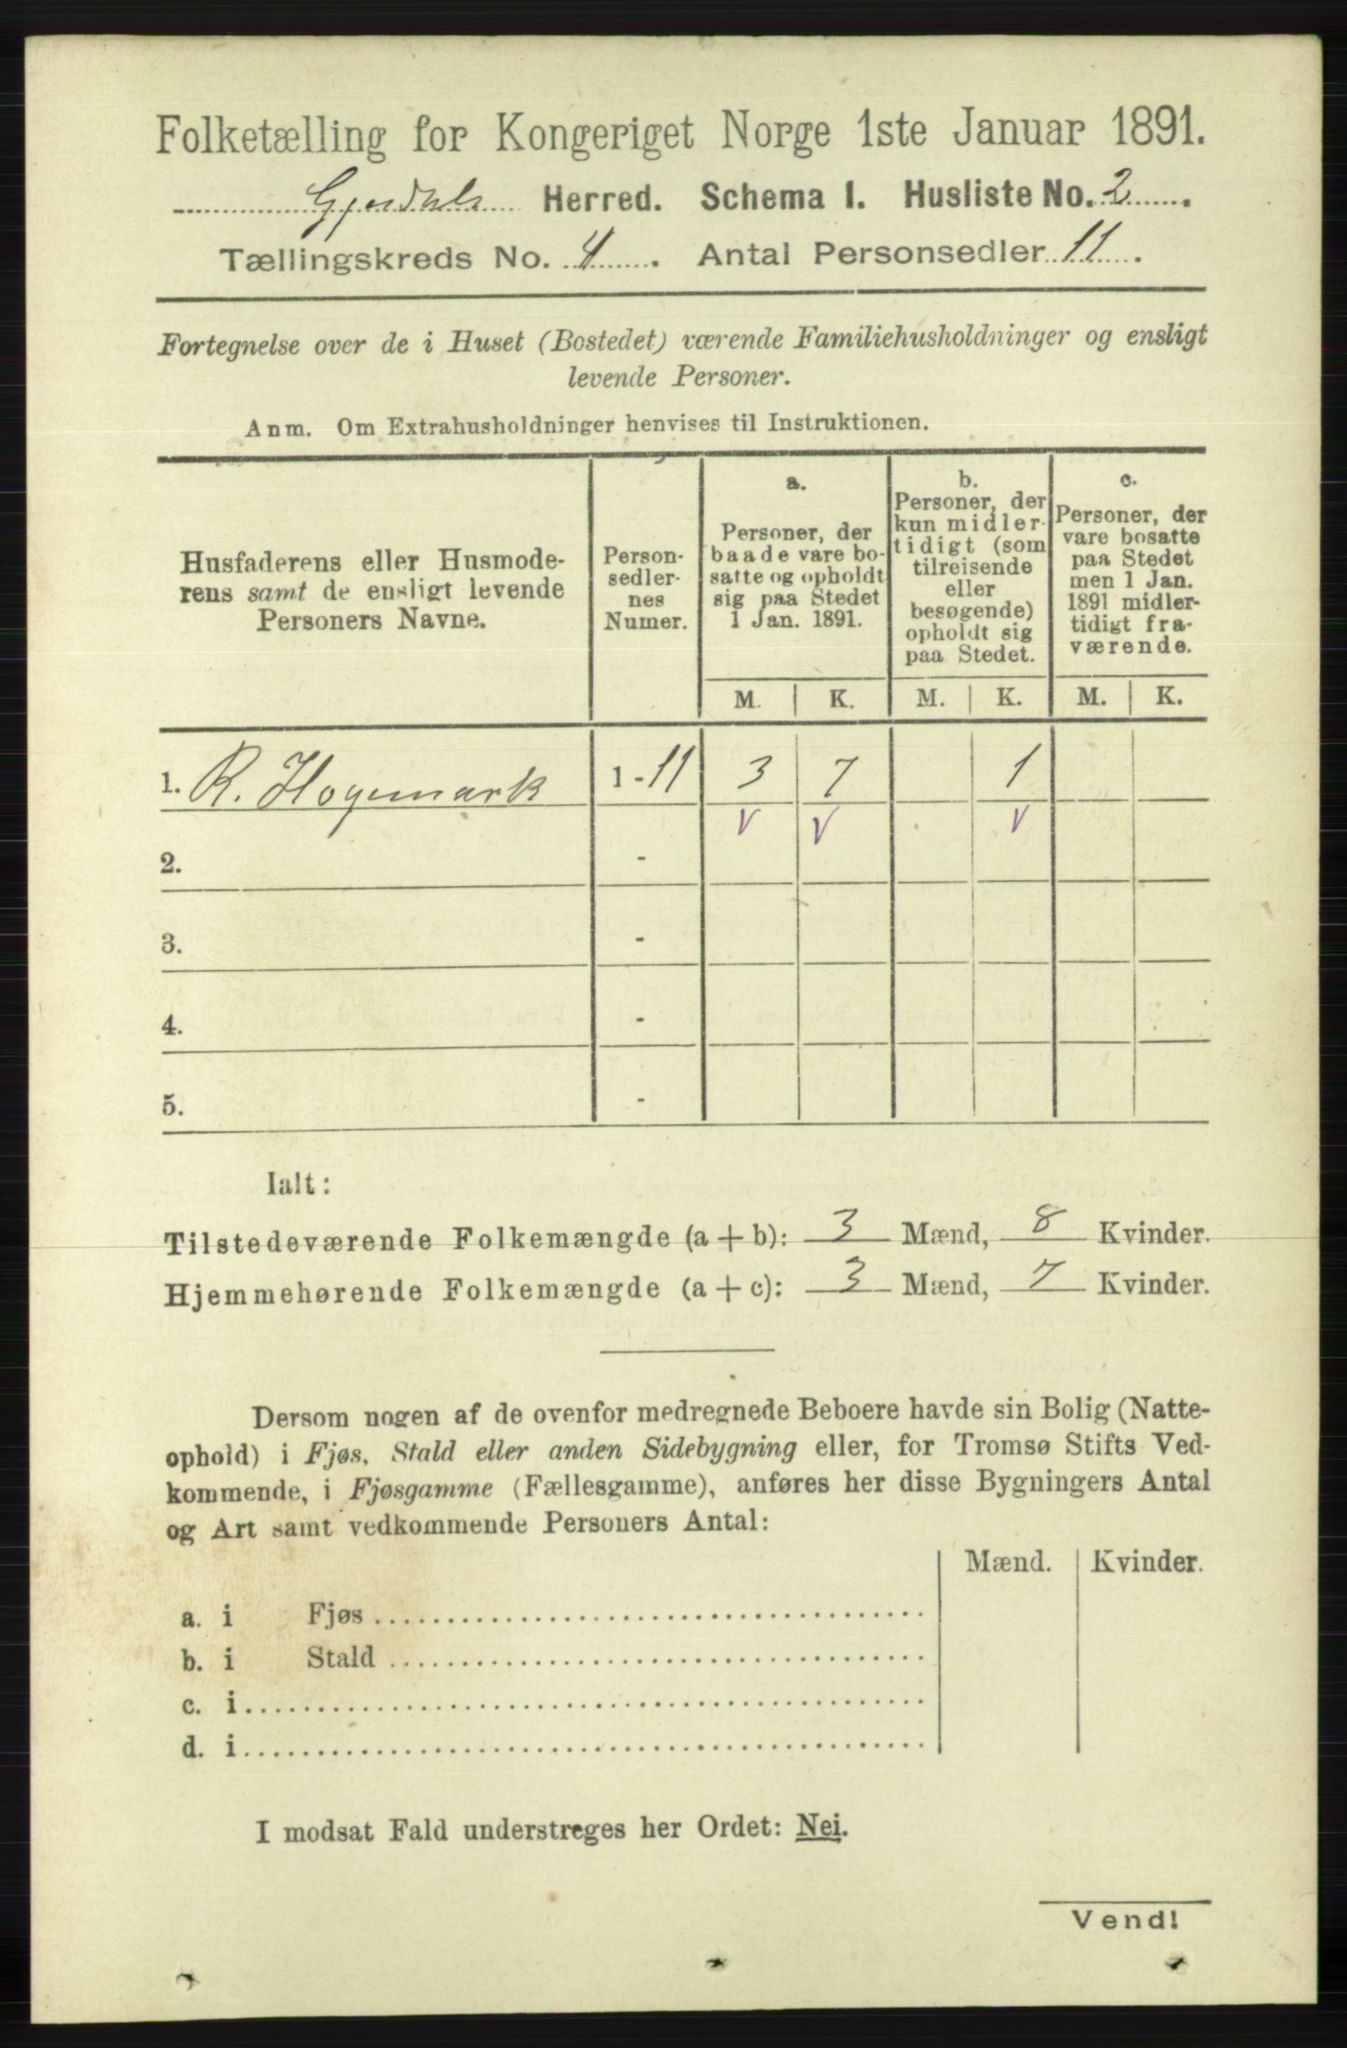 Folketælling for Kongeriget Norge 1ste Januar 1891.
Gjesdals Herred. Schema 1. Husliste No. 2.
Tællingskreds No. 4. Antal Personsedler 11.
Fortegnelse over de i Huset (Bostedet) værende Familiehusholdninger og ensligt
levende Personer.
Anm. Om Extrahusholdninger henvises til Instruktionen.
Husfaderens eller Husmode-
rens samt de ensligt levende
Personers Navne.
Person-
sedler-
nes
Numer.
a.
Personer, der
baade vare bo-
satte og opholdt
sig paa Stedet
1 Jan. 1891.
b.
Personer, der
kun midler-
tidigt (som
tilreisende
eller
besøgende)
opholdt sig
paa Stedet.
c.
Personer, der
vare bosatte
paa Stedet
men 1 Jan.
1891 midler-
tidigt fra-
værende.
M. K. M. K. M. K.
1. R. Hogemark 1-11 3 7 1
V V V
2. -
3. -
4. -
5. -
Ialt:
Tilstedeværende Folkemængde (a+b): 3 Mænd, 8 Kvinder.
Hjemmehørende Folkemængde (a+c): 3 Mænd, 7 Kvinder.
Dersom nogen af de ovenfor medregnede Beboere havde sin Bolig (Natte-
ophold) i Fjøs, Stald eller anden Sidebygning eller, for Tromsø Stifts Ved-
kommende, i Fjøsgamme (Fællesgamme), anføres her disse Bygningers Antal
og Art samt vedkommende Personers Antal:
Mænd. Kvinder.
a. i Fjøs
b. i Stald
c. i
d. i
I modsat Fald understreges her Ordet: Nei.
Vend!